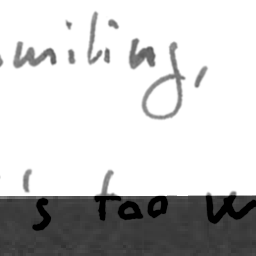 smiling,
's too